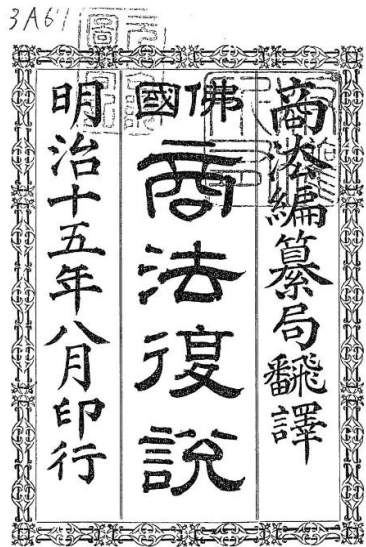 3A61
商法編纂局飜譯
佛國
商法復説
明治十五年八月印行